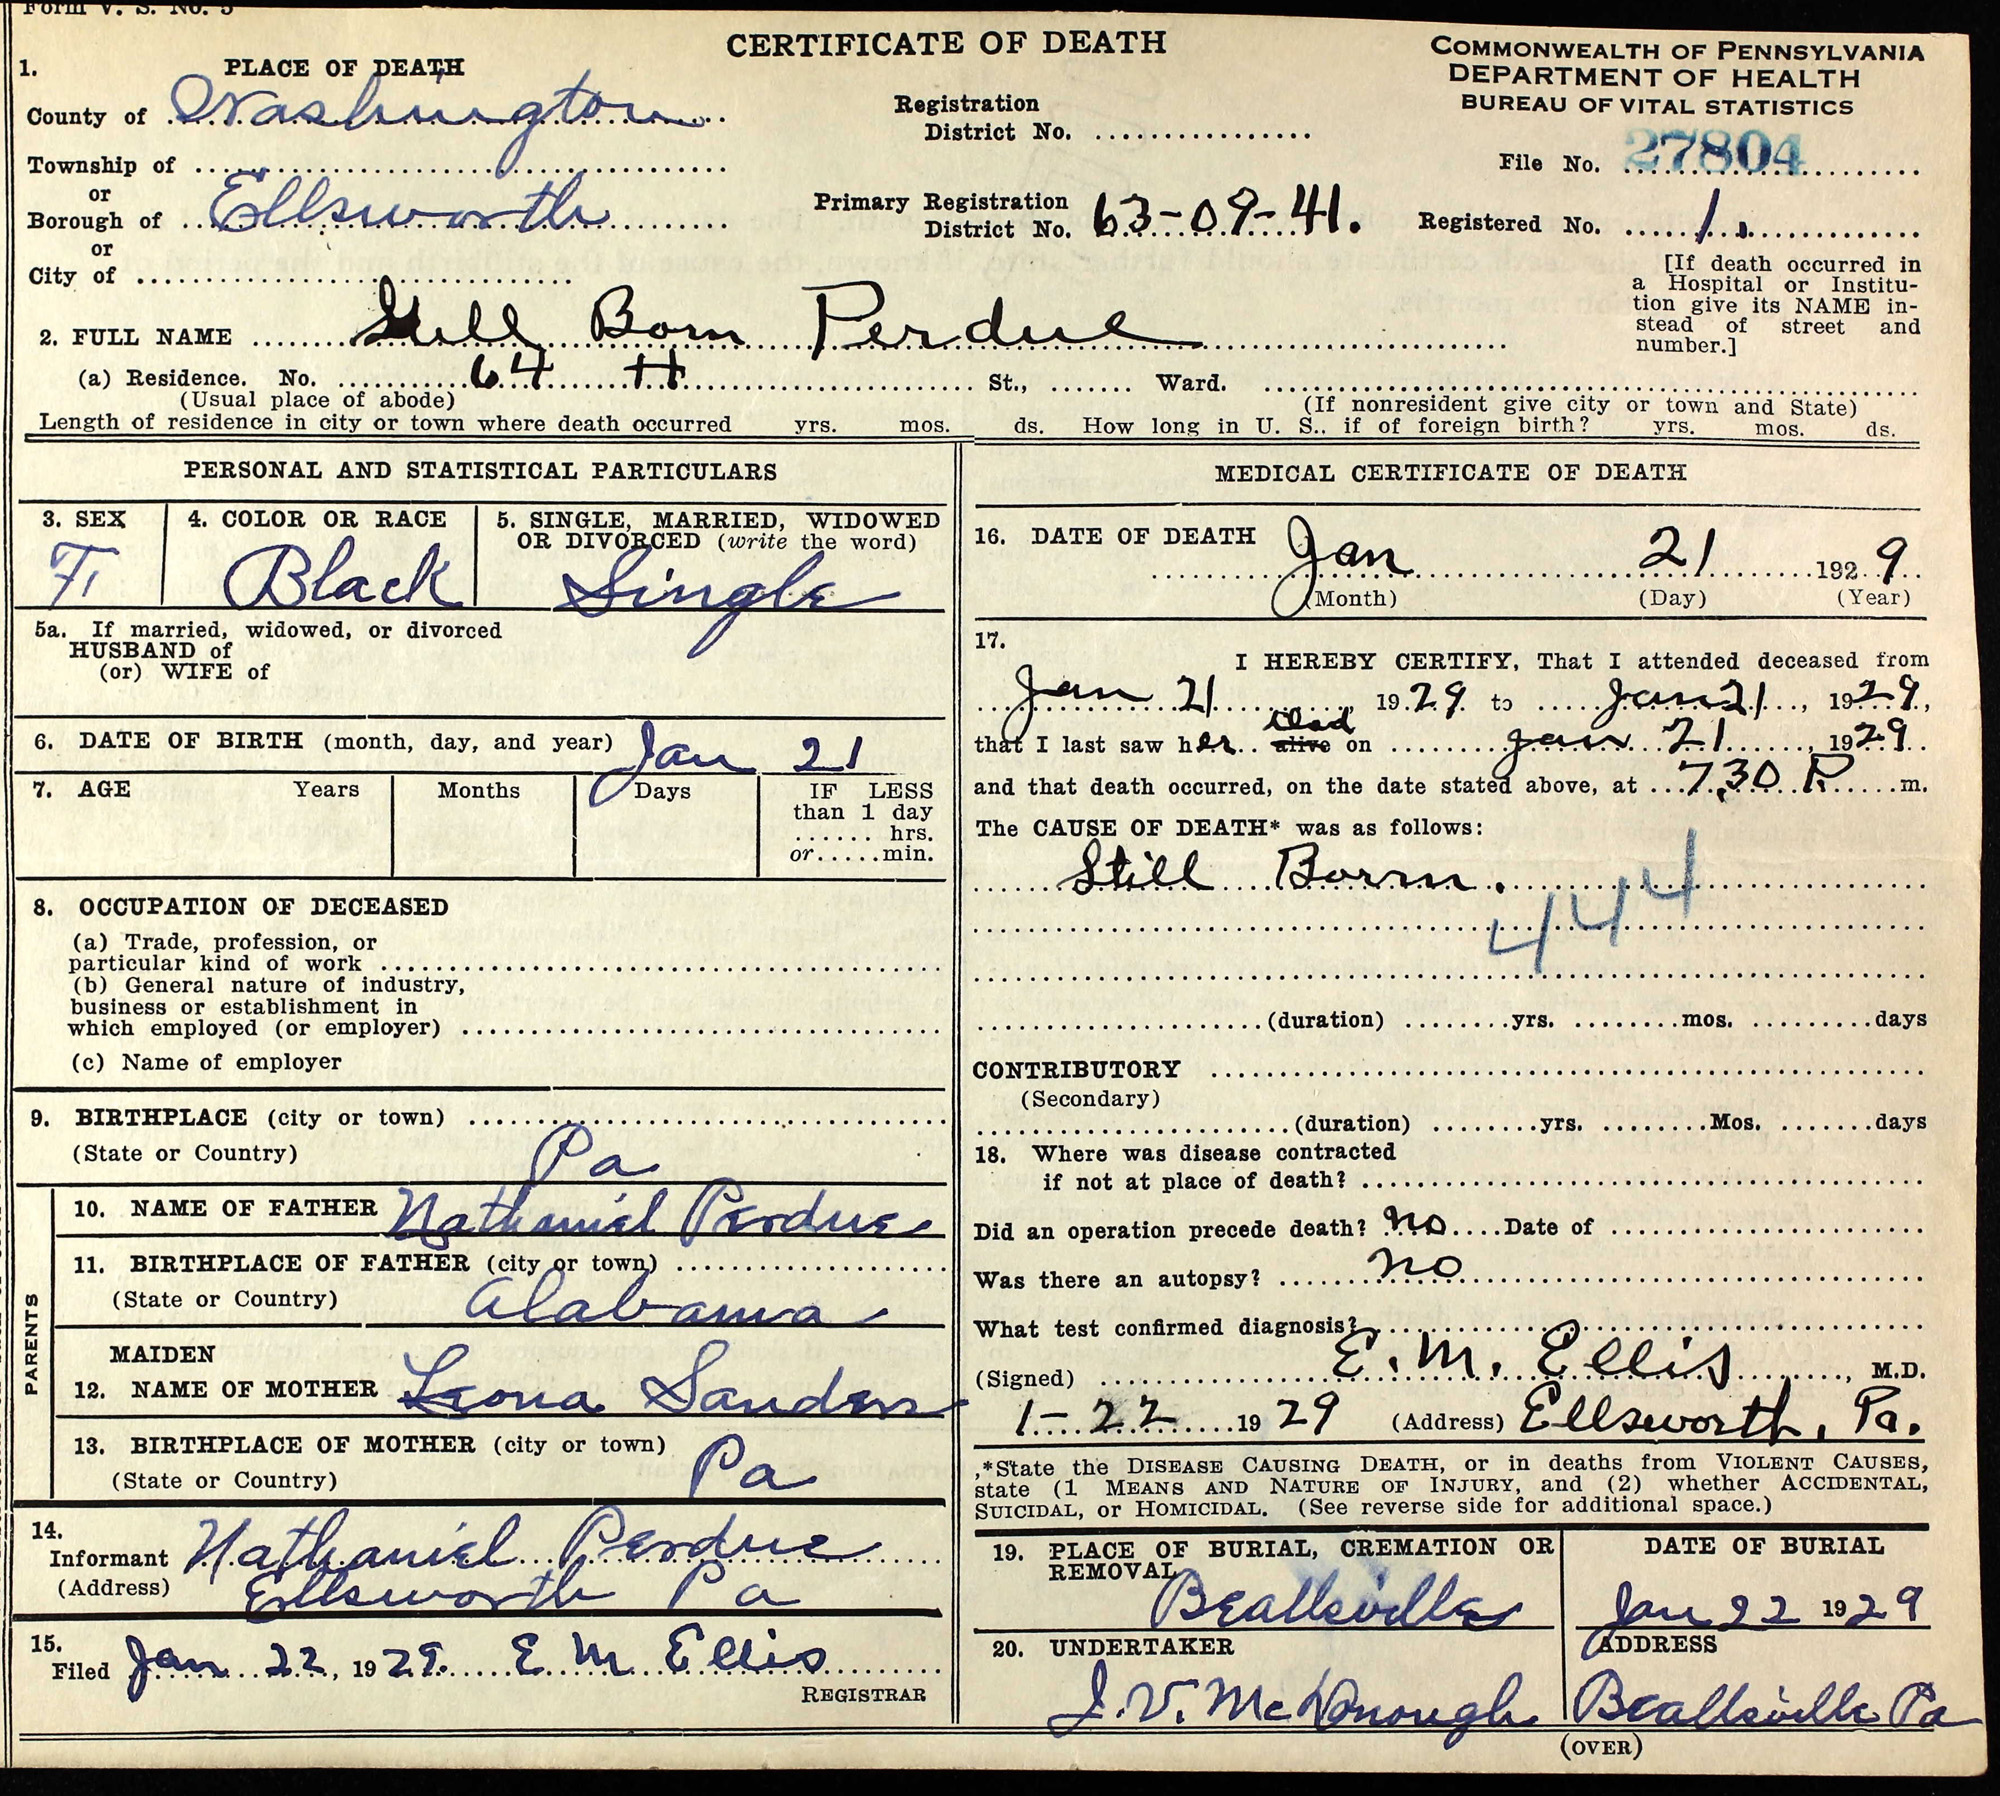 Form V. S. No. 5
CERTIFICATE OF DEATH
COMMONWEALTH OF PENNSYLVANIA
DEPARTMENT OF HEALTH
BUREAU OF VITAL STATISTICS
1. PLACE OF DEATH
County of Washington
Registration
District No.
File No. 27804
Township of
or
Borough of Ellsworth
Primary Registration
District No. 63-09-41.
Registered No. 1.
or
City of
[If death occurred in
a Hospital or Institu-
tion give its NAME in-
stead of street and
number.]
2. FULL NAME Still Born Perdue
(a) Residence. No. 64 H St., Ward.
(Usual place of abode)
(If nonresident give city or town and State)
Length of residence in city or town where death occurred yrs. mos. ds. How long in U. S., if of foreign birth? yrs. mos. ds.
PERSONAL AND STATISTICAL PARTICULARS
3. SEX
F
4. COLOR OR RACE
Black
5. SINGLE, MARRIED, WIDOWED
OR DIVORCED (write the word)
Single
5a. If married, widowed, or divorced
HUSBAND of
(or) WIFE of
6. DATE OF BIRTH (month, day, and year) Jan 21
7. AGE Years Months Days IF LESS
than 1 day
hrs.
or min.
8. OCCUPATION OF DECEASED
(a) Trade, profession, or
particular kind of work
(b) General nature of industry,
business or establishment in
which employed (or employer)
(c) Name of employer
9. BIRTHPLACE (city or town)
(State or Country) Pa
PARENTS
10. NAME OF FATHER Nathaniel Perdue
11. BIRTHPLACE OF FATHER (city or town)
(State or Country) Alabama
MAIDEN
12. NAME OF MOTHER Leona Sanders
13. BIRTHPLACE OF MOTHER (city or town)
(State or Country) Pa
14.
Informant Nathaniel Perdue
(Address) Ellsworth Pa
15.
Filed Jan 22, 1929. E M Ellis
REGISTRAR
MEDICAL CERTIFICATE OF DEATH
16. DATE OF DEATH
Jan 21 1929
(Month) (Day) (Year)
17.
I HEREBY CERTIFY, That I attended deceased from
Jan 21, 1929 to Jan 21, 1929,
dead
that I last saw her alive on Jan 21, 1929
and that death occurred, on the date stated above, at 7.30 P. m.
The CAUSE OF DEATH* was as follows:
Still Born.
444
(duration) yrs. mos. days
CONTRIBUTORY
(Secondary)
(duration) yrs. Mos. days
18. Where was disease contracted
if not at place of death?
Did an operation precede death? no Date of
Was there an autopsy? no
What test confirmed diagnosis?
(Signed) E. M. Ellis, M.D.
1-22 1929 (Address) Ellsworth, Pa.
*State the DISEASE CAUSING DEATH, or in deaths from VIOLENT CAUSES,
state (1 MEANS AND NATURE OF INJURY, and (2) whether ACCIDENTAL,
SUICIDAL, or HOMICIDAL. (See reverse side for additional space.)
19. PLACE OF BURIAL, CREMATION OR
REMOVAL
Beallsville
DATE OF BURIAL
Jan 22 1929
20. UNDERTAKER
J. V. McDonough
ADDRESS
Beallsville Pa
(OVER)